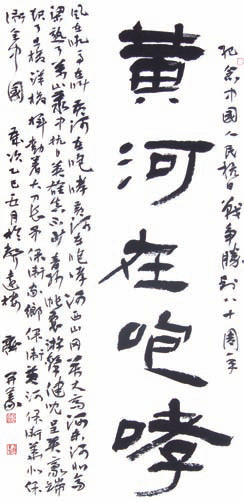 纪念中國人民抗日戰争勝利八十周年
黄河在咆哮
風在吼马在叫黄河在咆哮黄河在咆哮河西山冈万丈高河东河北高
梁熟了万山丛中抗日英雄真不少青纱帐里游擊健儿逞英豪端
起了土枪洋枪挥动着大刀长矛保衛家鄉保衛黄河保衛華北保
衛全中國 歲次乙巳五月於